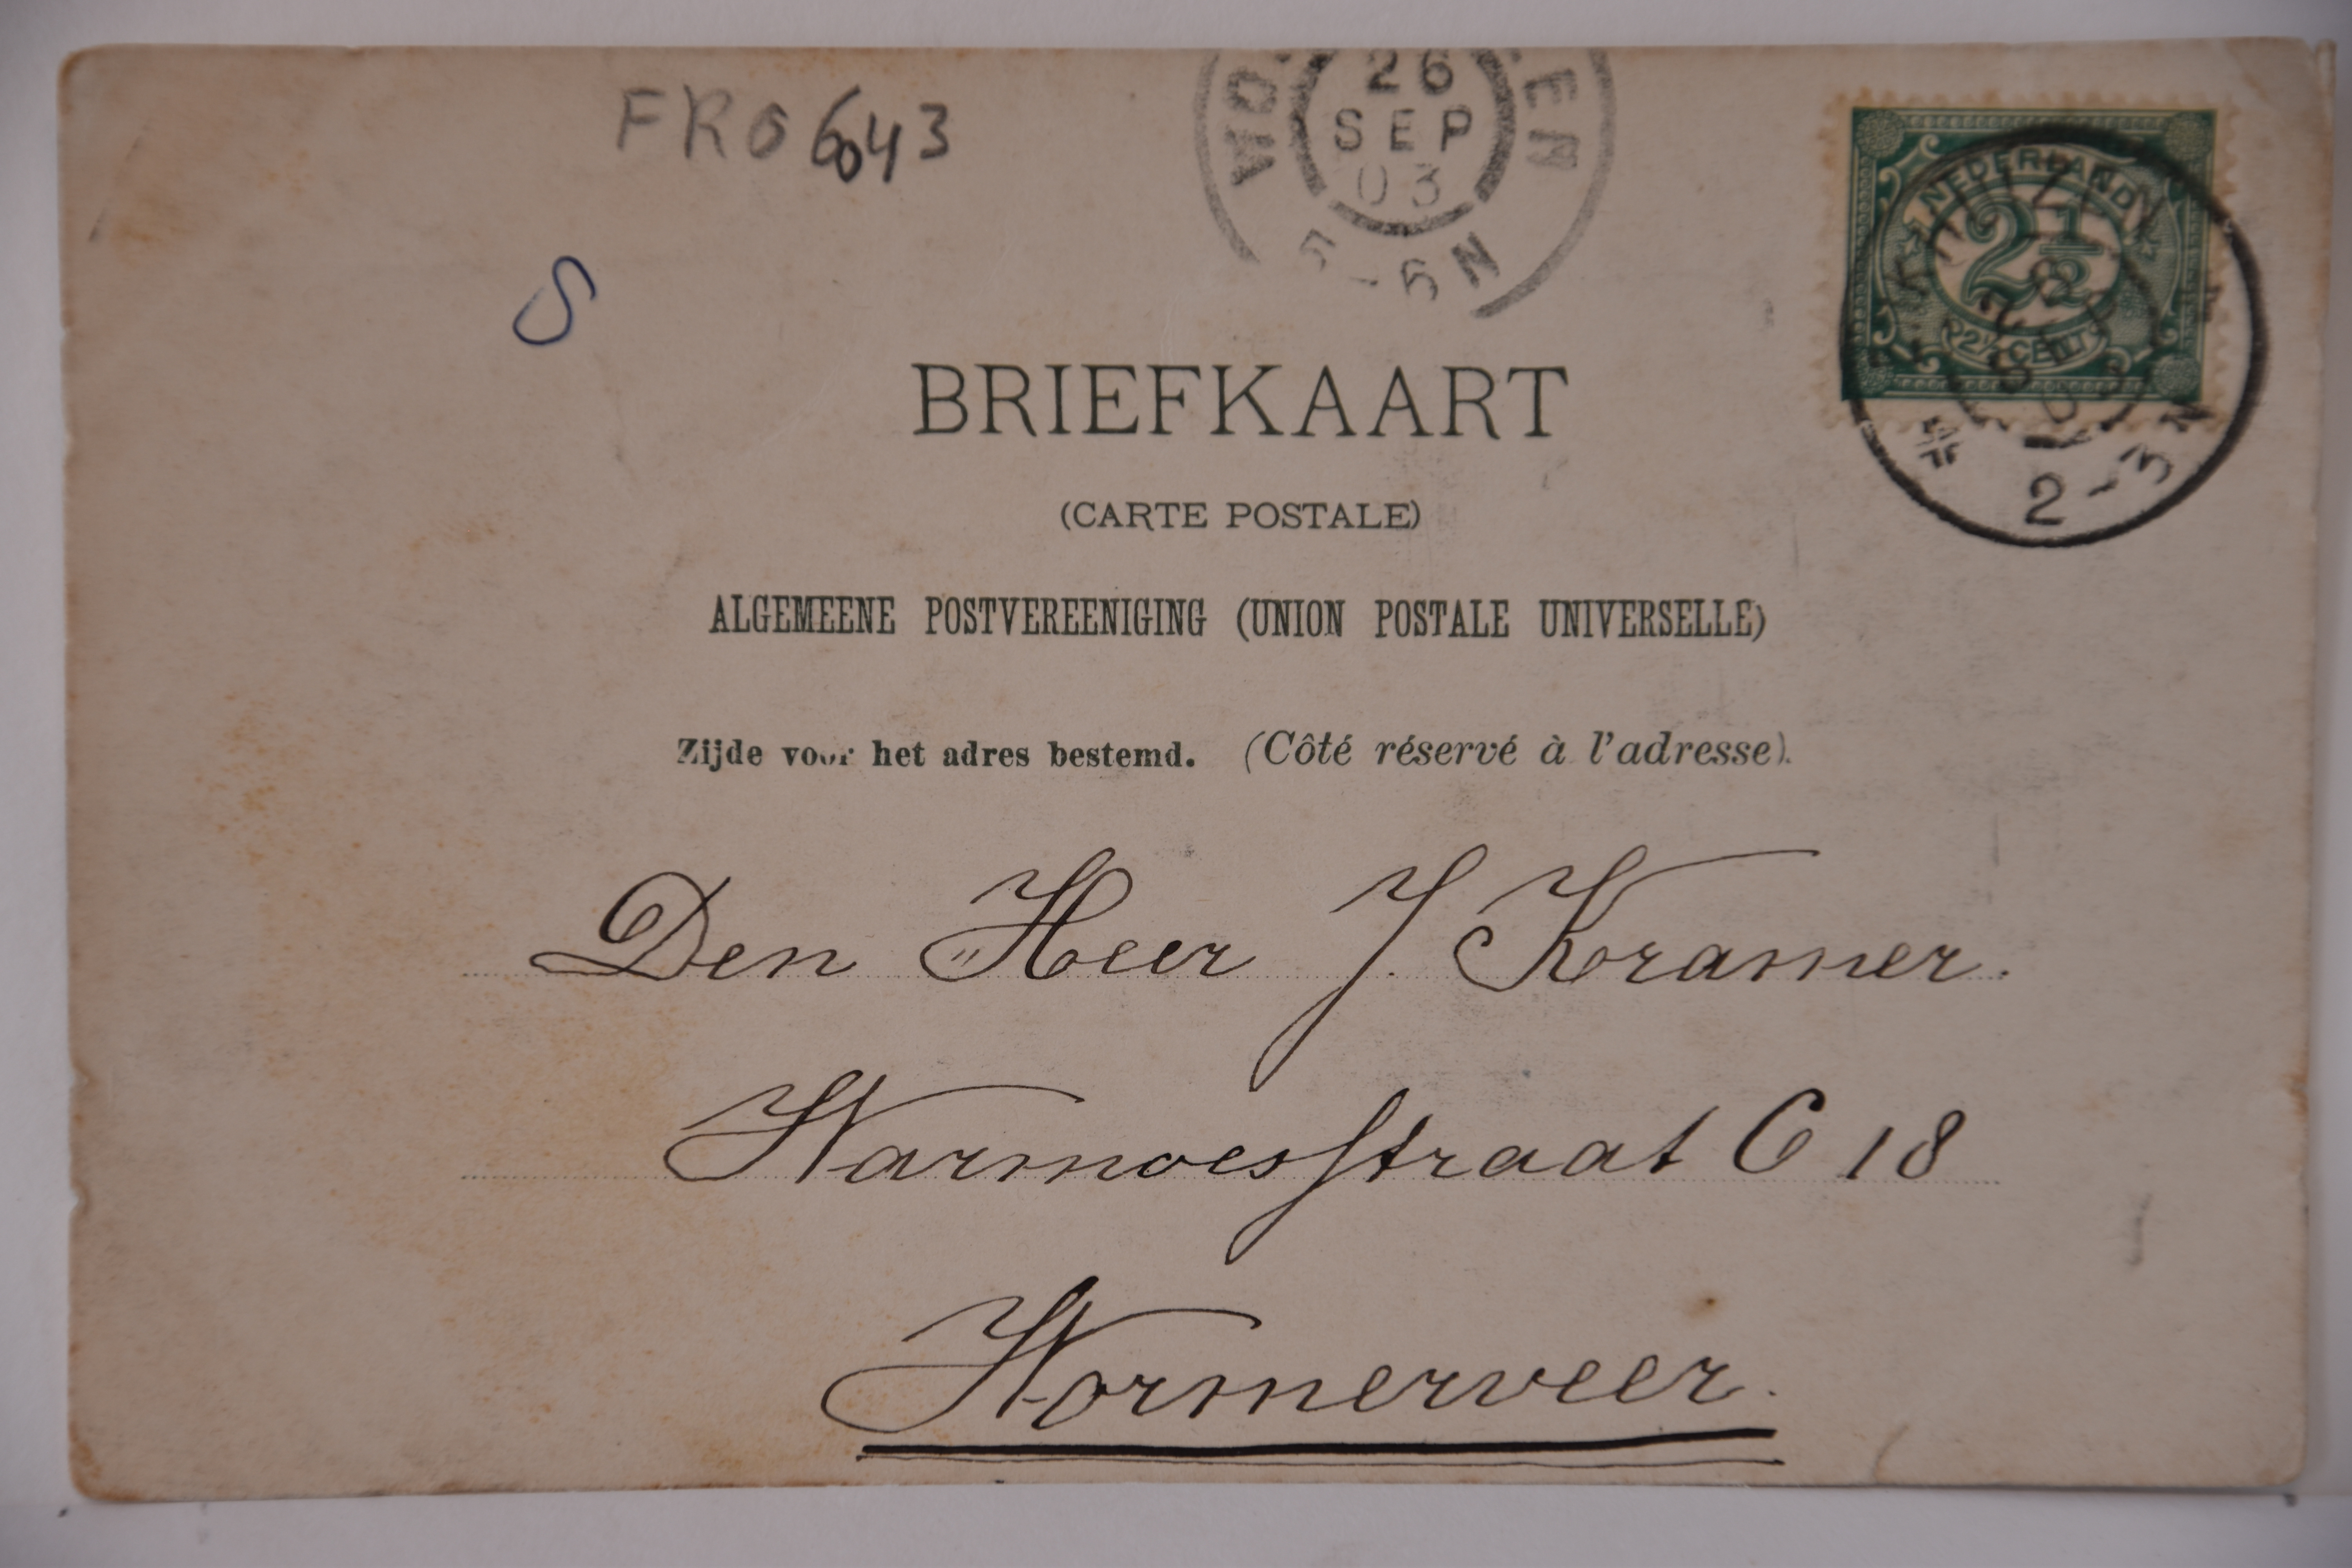 FRO 6043
26
SEP
03
5-6 N
S
NEDERLAND
2½
2½ CENT
2-3 N
BRIEFKAART
(CARTE POSTALE)
ALGEMEENE POSTVEREENIGING (UNION POSTALE UNIVERSELLE)
Zijde voor het adres bestemd. (Côté réservé à l'adresse).
Den Heer J. Kramer.
Warmoesstraat C 18
Wormerveer.